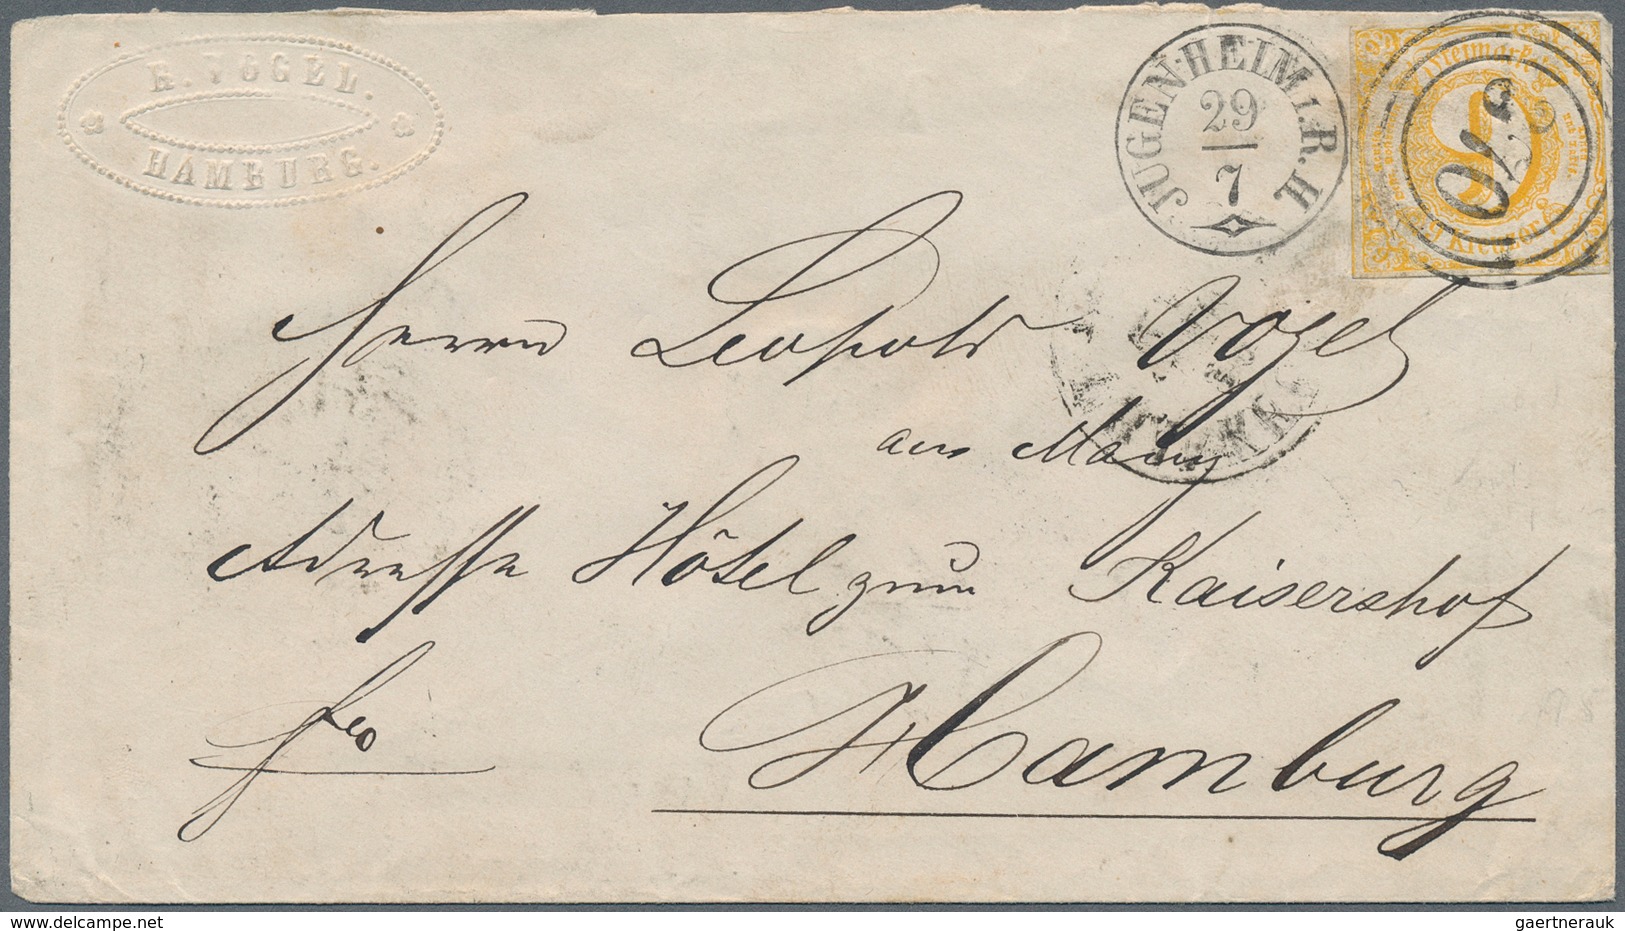 R. VOGEL.
HAMBURG.
JUGENHEIM i. R. H.
29
7
Freimarke
9 Kreuzer
370
Herrn Leopold Vogel
aus Mainz
Adresse Hôtel zum Kaisershof
fco
Hamburg
gaertnerauk
delcampe.net